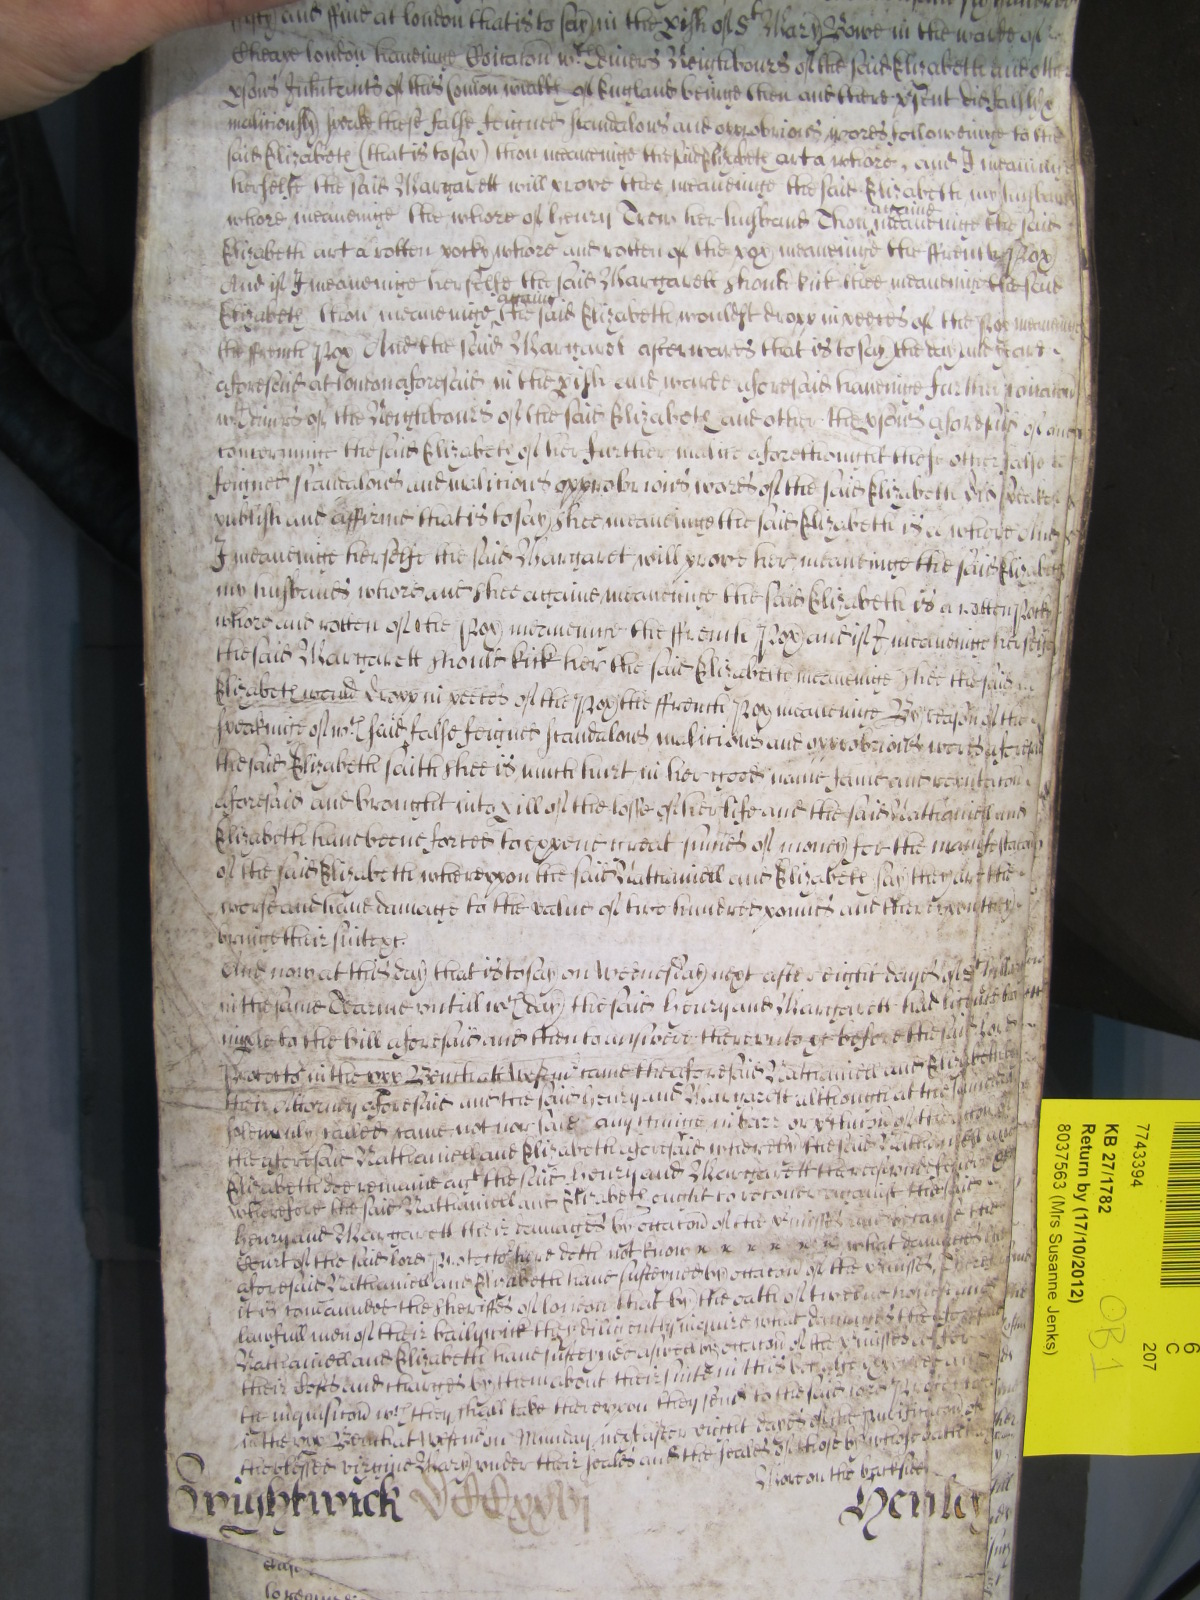 fifty and ffive at london that is to say in the pish of St Mary Bowe in the warde of
Cheape london haveinge Coicacon wth divers Neighbours of the said Elizabeth and other
psons Inhitants of this Comon wealth of England beinge then and there psent did falsly
malitiously speake these false feigned scandalous and opprobrious words followeinge to the
said Elizabeth (that is to say) thou meaneinge the said Elizabeth art a whore, and I meaninge
herselfe the said Margarett will prove thee meaneinge the said Elizabeth my husbands
whore meaneinge the whore of henry Trew her husband Thou againe meaneinge the said
Elizabeth art a rotten pocky whore and rotten of the pox meaneinge the ffrench Pox
And if I meaneinge herselfe the said Margarett should kick thee meaneinge the said
Elizabeth thou meaneinge againe the said Elizabeth wouldst dropp in peeces of the Pox meaneinge
the ffrench Pox And the said Margarett afterwards that is to say the day and yeare
aforesaid at london aforesaid in the pish and warde aforesaid haveinge further coicacon
wth divers of the Neighbours of the said Elizabeth and other the psons aforesaid of and
concerninge the said Elizabeth of her further malice aforethought these other false
feigned scandalous and malitious opprobrious words of the said Elizabeth did speake
publish and affirme that is to say shee meaneinge the said Elizabeth is a whore and
I meaneinge herselfe the said Margaret will prove her meaneinge the said Elizabeth
my husbands whore and shee againe meaneinge the said Elizabeth is a rotten Pocky
whore and rotten of the Pox meaneinge the ffrench Pox and if I meaneinge herselfe
the said Margarett should kick her the said Elizabeth meaneinge shee the said
Elizabeth would dropp in peeces of the Pox the ffrench Pox meaneinge By reason of the
speakinge of wch said false feigned scandalous malitious and opprobrious words aforesaid
the said Elizabeth saith shee is much hurt in her good name fame and reputacon
aforesaid and brought into pill of the losse of her life and the said Nathaniell and
Elizabeth have beene forced to expend great sumes of money for the manifestacon
of the said Elizabeth whereupon the said Nathaniell and Elizabeth say they are the
worse and have damage to the value of two hundred pounds and thereupon they
bringe their suite &c.
And now at this day that is to say on Wednesday next after eight dayes of St
in the same Tearme untill wch day the said henry and Margarett had licence to
imple to the bill aforesaid and then to answere thereunto &c before the said Lord
Protector in the upp Bench att Westm came the aforesaid Nathaniell and Elizabeth by
their Attorney aforesaid and the said henry and Margarett although at the same day
solemnly called came not nor said any thinge in barr or pclusion of the accon of
the aforesaid Nathaniell and Elizabeth aforesaid whereby the said Nathaniell and
Elizabeth doe remaine agt the said henry and Margarett thereupon undefended
Wherefore the said Nathaniell and Elizabeth ought to recover against the said
henry and Margarett their damages by occacon of the pmisses and because the
Court of the said lord Protector here doth not know what damages the
aforesaid Nathaniell and Elizabeth have susteyned by occacon of the pmisses, Therefore
it is comanded the sheriffes of london that by the oath of twelve honest and
lawfull men of their bailywick they diligently inquire what damages the aforesaid
Nathaniell and Elizabeth have susteyned aswell by occacon of the pmisses as for
their costs and charges by them about their suite in this behalfe expended and
the inquisicon wch they shall take thereupon they send to the said lord Protector
in the upp Bench at Westm on Munday next after eight dayes of the Purificacon of
the blessed virgine Mary under their seales and the seales of those by whose oath
More on the backside
Brightwick
Henley
7743394
KB 27/1782
Return by (17/10/2012)
8037563 (Mrs Susanne Jenks)
OB 1
6
C
207